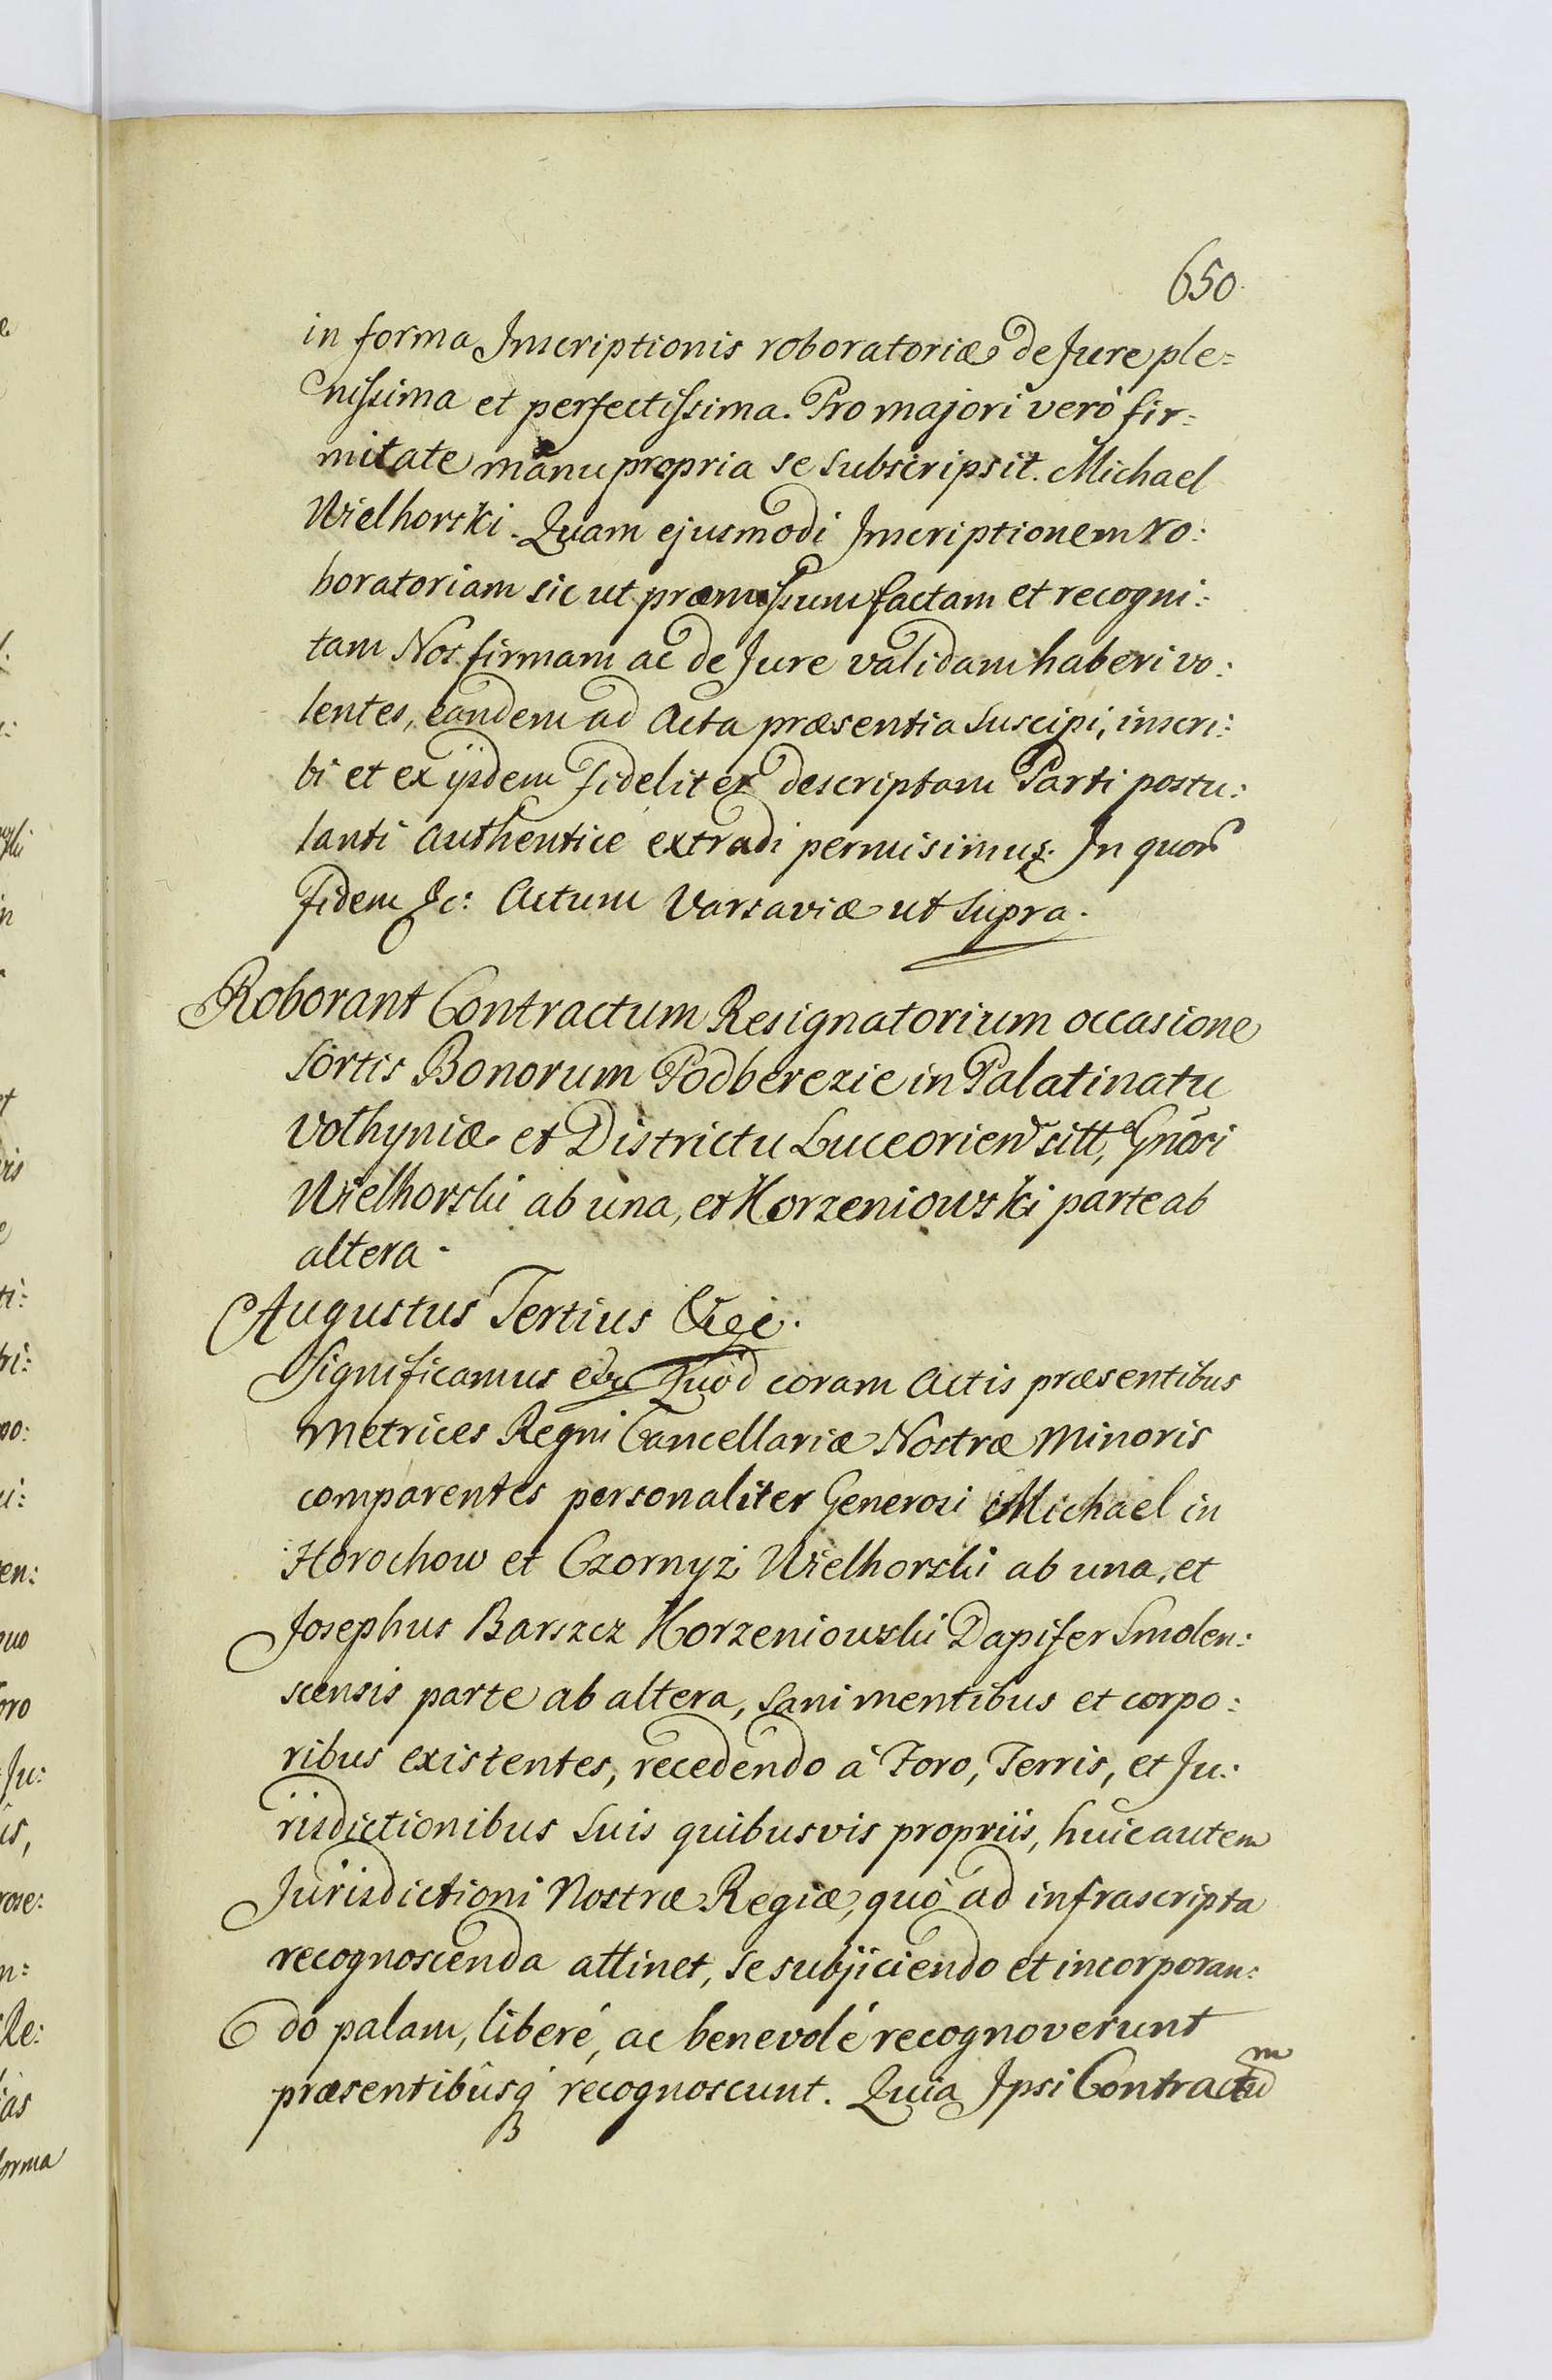 650.
in forma Inscriptionis roboratoriæ de Jure ple=
nissima et perfectissima. Pro majori verò fir=
mitate manu propria se subscripsit. Michael
Wielhorski. Quam ejusmodi Inscriptionem ro:
boratoriam sic ut præmissum factam et recogni:
tam Nos firmam ac de Jure validam haberi vo:
lentes, eandem ad Acta præsentia suscipi, inscri:
bi et ex ijsdem fideliter descriptam Parti postu:
lanti authenticè extradi permisimus. In quor
fidem &c: Actum Varsaviæ ut supra.
Roborant Contractum Resignatorium occasione
sortis Bonorum Podberezie in Palatinatu
Volhyniæ et Districtu Luceorien sitt, Gnosi
Wielhorski ab una, et Korzeniowski parte ab
altera.
Augustus Tertius &c.
Significamus &c Quòd coram Actis præsentibus
Metrices Regni Cancellariæ Nostræ Minoris
comparentes personaliter Generosi Michael in
Horochow et Czornyż Wielhorski ab una, et
Josephus Barszcz Korzeniowski Dapifer Smolen:
scensis parte ab altera, sani mentibus et corpo:
ribus existentes, recedendo à Foro, Terris, et Ju:
risdictionibus suis quibusvis propriis, huic autem
Jurisdictioni Nostræ Regiæ, quò ad infrascripta
recognoscenda attinet, se subjiciendo et incorporan:
do palam, liberè, ac benevolè recognoverunt
præsentibûsq recognoscunt. Quia Ipsi Contractum